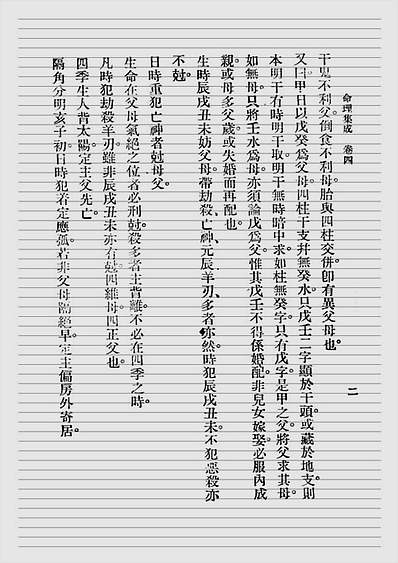 命理集成 卷四 二
干鬼不利父。倒食不利母。胎與四柱交併。卽有異父母也。
又曰。甲日以戊癸爲父母。四柱干支并無癸水。只戊壬二字顯於干頭。或藏於地支。則
本明干有時明干取。明干無時暗中求。如柱無癸字。只有戊字。是甲之父。將父求其母。
如無母。只將壬水爲母。亦須論戊爲父。惟其戊壬不得係婚配。非兒女嫁娶。必服內成
親。或母多父歲。或失婚而再配也。
生時辰戌丑未妨父母。帶劫殺、亡神、元辰羊刃、多者亦然。時犯辰戌丑未。不犯惡殺亦
不尅。
日時重犯亡神者尅母父。
生命在父母氣絕之位者必刑尅。殺多者主背離。不必在四季之時。
凡時犯劫殺羊刃。雖非辰戌丑未亦有尅。四維母。四正父也。
四季生人背太陽。定主父先亡。
隔角分明亥子初。日時犯着定應孤。若非父母臨絕早。定主偏房外寄居。